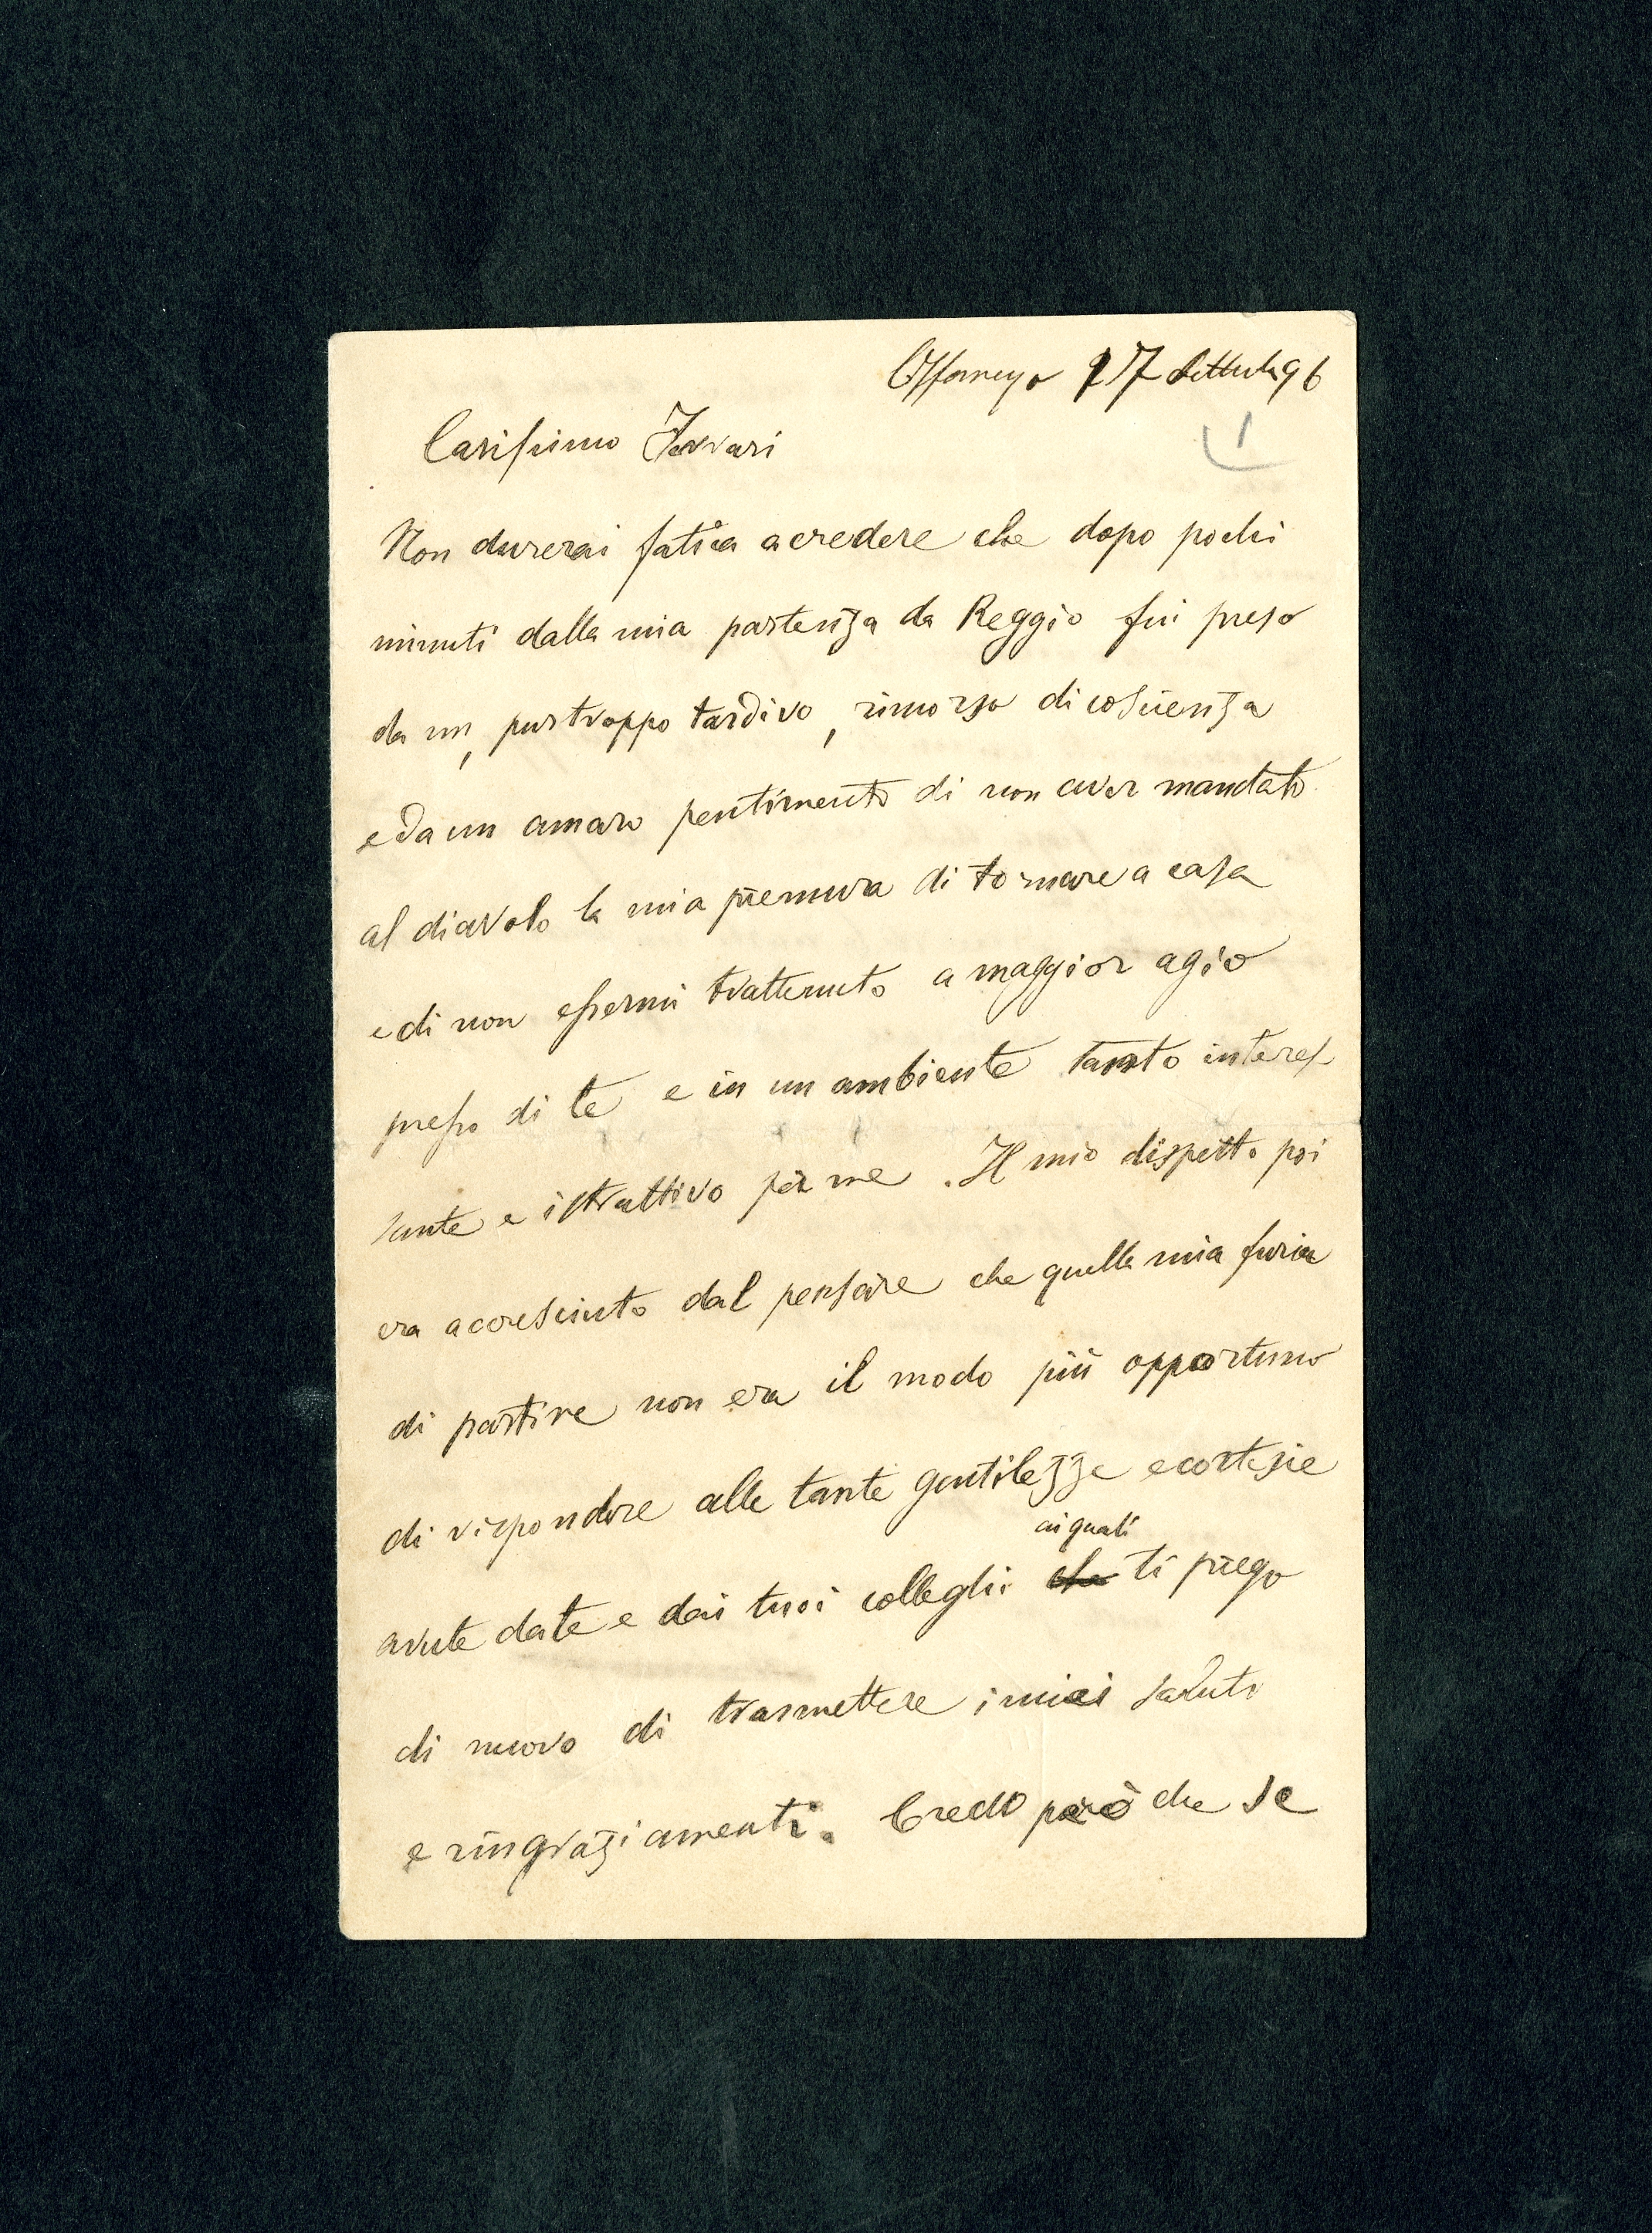 Offanengo 17 Settembre 96
1
Carissimo Ferrari
Non durerai fatica a credere che dopo pochi
minuti dalla mia partenza da Reggio fui preso
da un, purtroppo tardivo, rimorso di coscienza
e da un amaro pentimento di non aver mandato
al diavolo la mia premura di tornare a casa
e di non essermi trattenuto a maggior agio
presso di te e in un ambiente tanto interes
sante e istruttivo per me. Il mio dispetto poi
era accresciuto dal pensare che quella mia furia
di partire non era il modo più opportuno
di rispondere alle tante gentilezze e cortesie
ai quali
avute da te e dai tuoi colleghi che ti prego
di nuovo di trasmettere i miei saluti
e ringraziamenti. Credo però che se